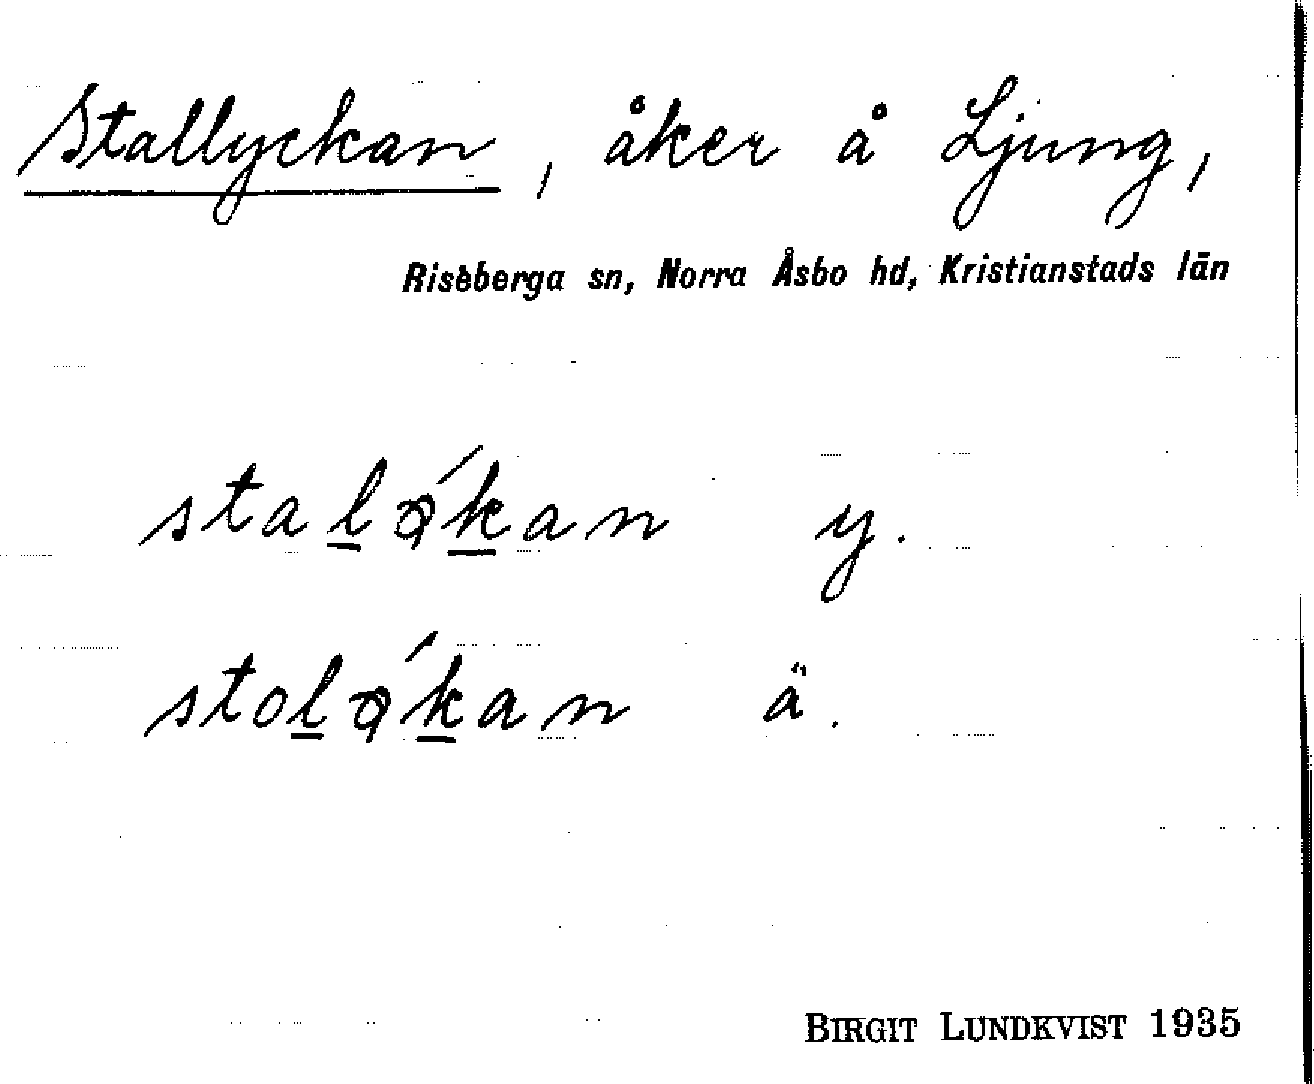 Stallyckan, åker å Ljung,
Riseberga sn, Norra Åsbo hd, Kristianstads län
stal̲ǫ́k̲an y.
stol̲ǫ́k̲an ä.
BIRGIT LUNDKVIST 1935